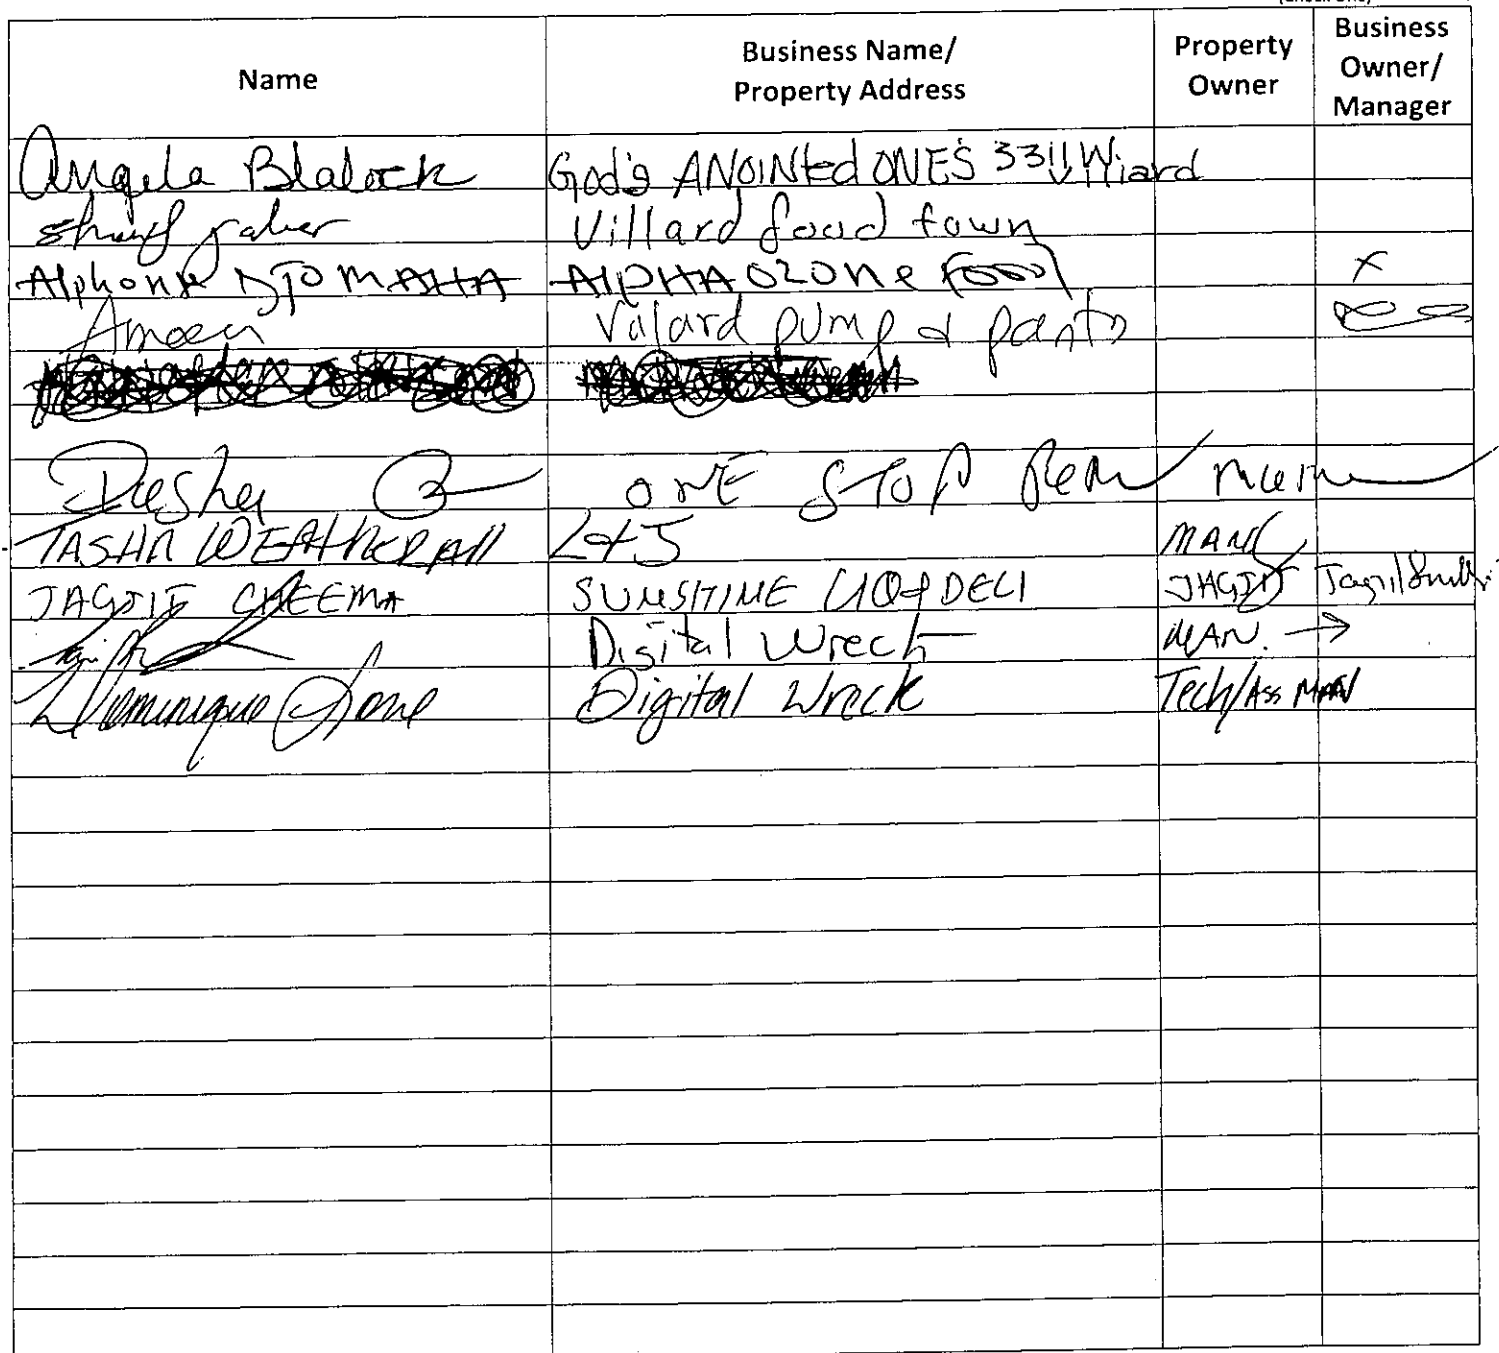 (Check One)
Name
Business Name/
Property Address
Property
Owner
Business
Owner/
Manager
Angela Blalock God's ANOINted ONE'S 3311 Wiard
Villard food town
Alphonse NJOMAHA ALPHA OZONE FOOD X
Ameen Valard pump & pants
ONE STOP
TASHA WEATHERALL L & J MANG
JAGJIT CHEEMA SUNSHINE LIQ & DELI JAGJIT
Digital Wreck MAN. →
Dominique Digital Wreck Tech/Ass MAN